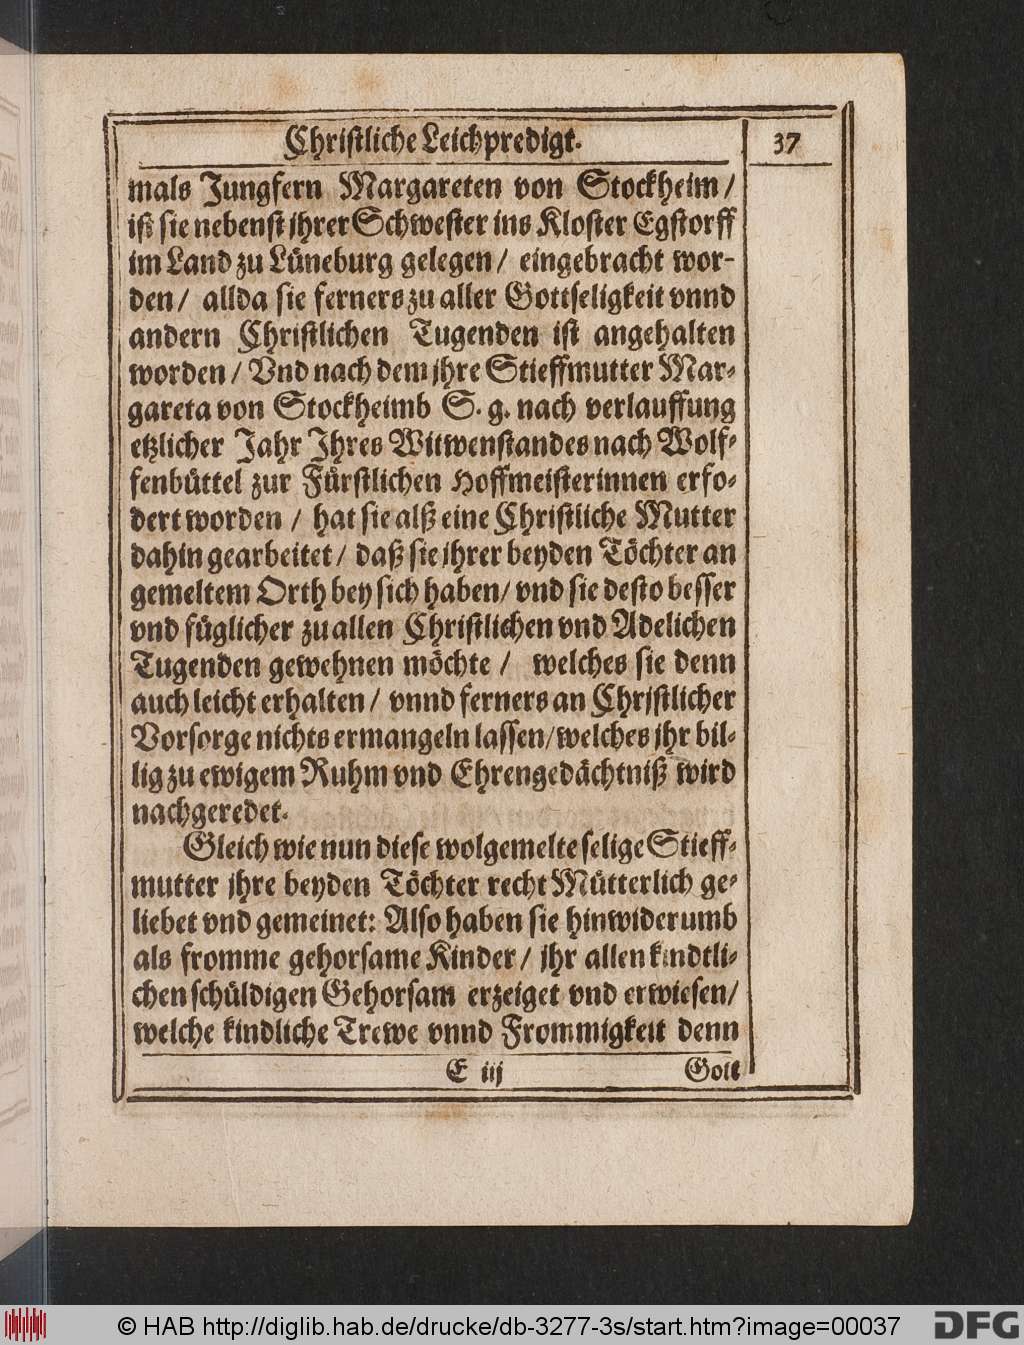 Christliche Leichpredigt.
37
mals Jungfern Margareten von Stockheim /
ist sie nebenst jhrer Schwester ins Kloster Egstorff
im Land zu Lüneburg gelegen / eingebracht wor-
den / allda sie ferners zu aller Gottseligkeit vnnd
andern Christlichen Tugenden ist angehalten
worden / Vnd nach dem jhre Stieffmutter Mar-
gareta von Stockheimb S. g. nach verlauffung
etzlicher Jahr Jhres Witwenstandes nach Wolf-
fenbüttel zur Fürstlichen Hoffmeisterinnen erfo-
dert worden / hat sie alß eine Christliche Mutter
dahin gearbeitet / daß sie jhrer beyden Töchter an
gemeltem Orth bey sich haben / vnd sie desto besser
vnd füglicher zu allen Christlichen vnd Adelichen
Tugenden gewehnen möchte / welches sie denn
auch leicht erhalten / vnnd ferners an Chrjstlicher
Vorsorge nichts ermangeln lassen / welches jhr bil-
lig zu ewigem Ruhm vnd Ehrengedächtniß wird
nachgeredet.
Gleich wie nun diese wolgemelte selige Stieff-
mutter jhre beyden Töchter recht Mütterlich ge-
liebet vnd gemeinet: Also haben sie hinwiderumb
als fromme gehorsame Kinder / jhr allen kindtli-
chen schüldigen Gehorsam erzeiget vnd erwiesen /
welche kindliche Trewe vnnd Frommigkeit denn
E iij
Gott
© HAB http://diglib.hab.de/drucke/db-3277-3s/start.htm?image=00037
DFG